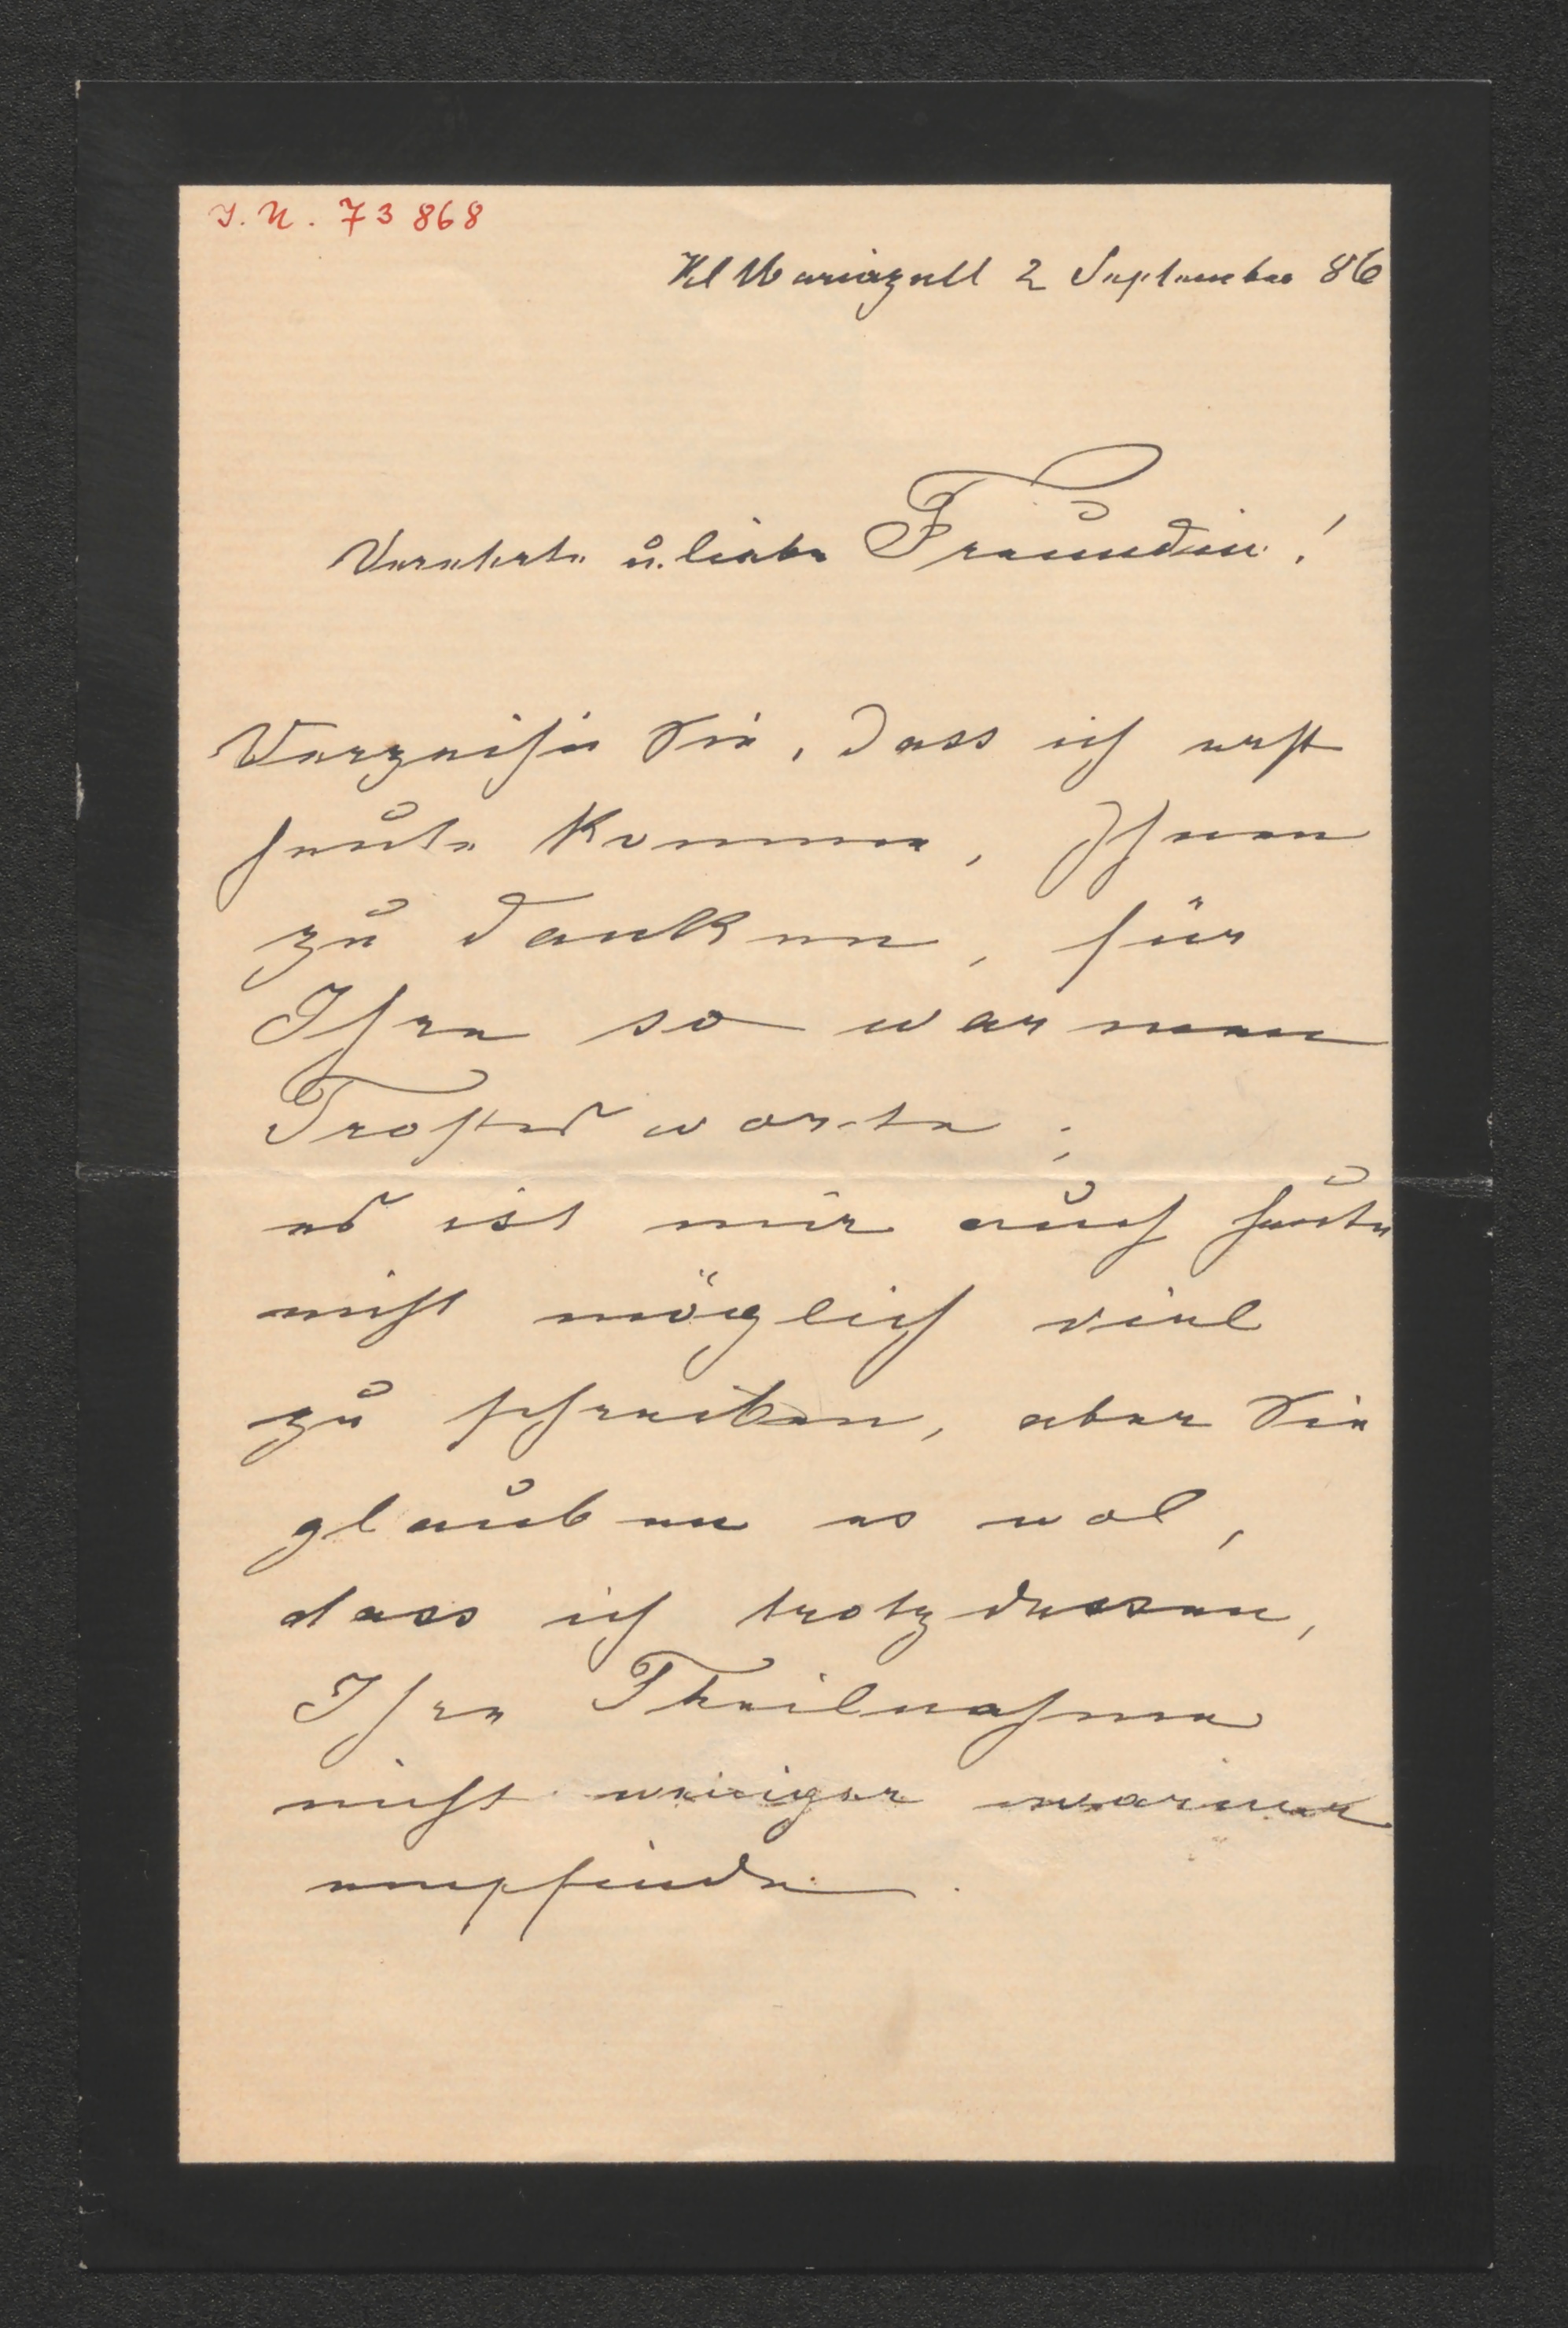 I. N. 73868
Kl Mariazell 2 September 86
Verehrte u. liebe Freundin!
Verzeihen Sie, dass ich erst
heute komme, Ihnen
zu danken, für
Ihre so warmen
Trostesworte;
es ist mir auch heute
nicht möglich viel
zu schreiben, aber Sie
glauben es wol,
dass ich trotzdessen,
Ihre Theilnahme
nicht weniger warm
empfinde.